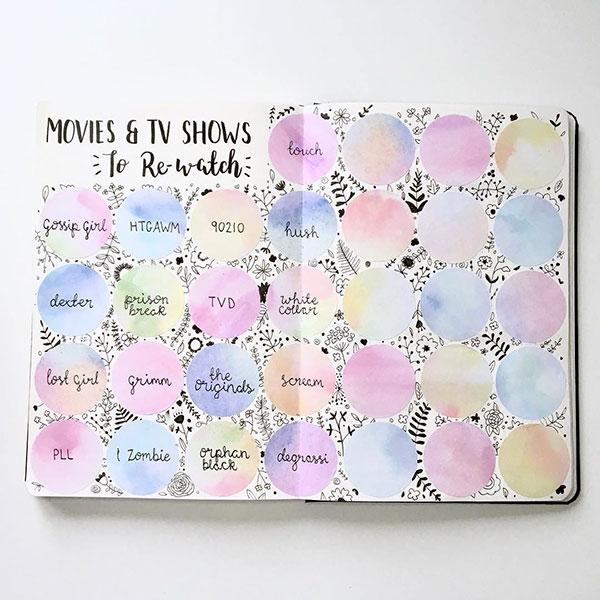 MOVIES & TV SHOWS
To Re-watch
touch
Gossip Girl
HTGAWM
90210
hush
dexter
prison
break
TVD
white
collar
lost Girl
grimm
the
originals
scream
PLL
I Zombie
orphan
black
degrassi